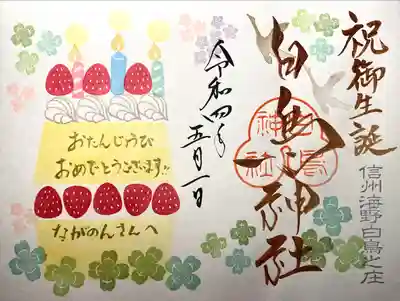 祝御生誕
信州海野白鳥之庄
白鳥神社
白鳥神社
令和四年
五月一日
おたんじょうび
おめでとうございます!!
ながのんさんへ